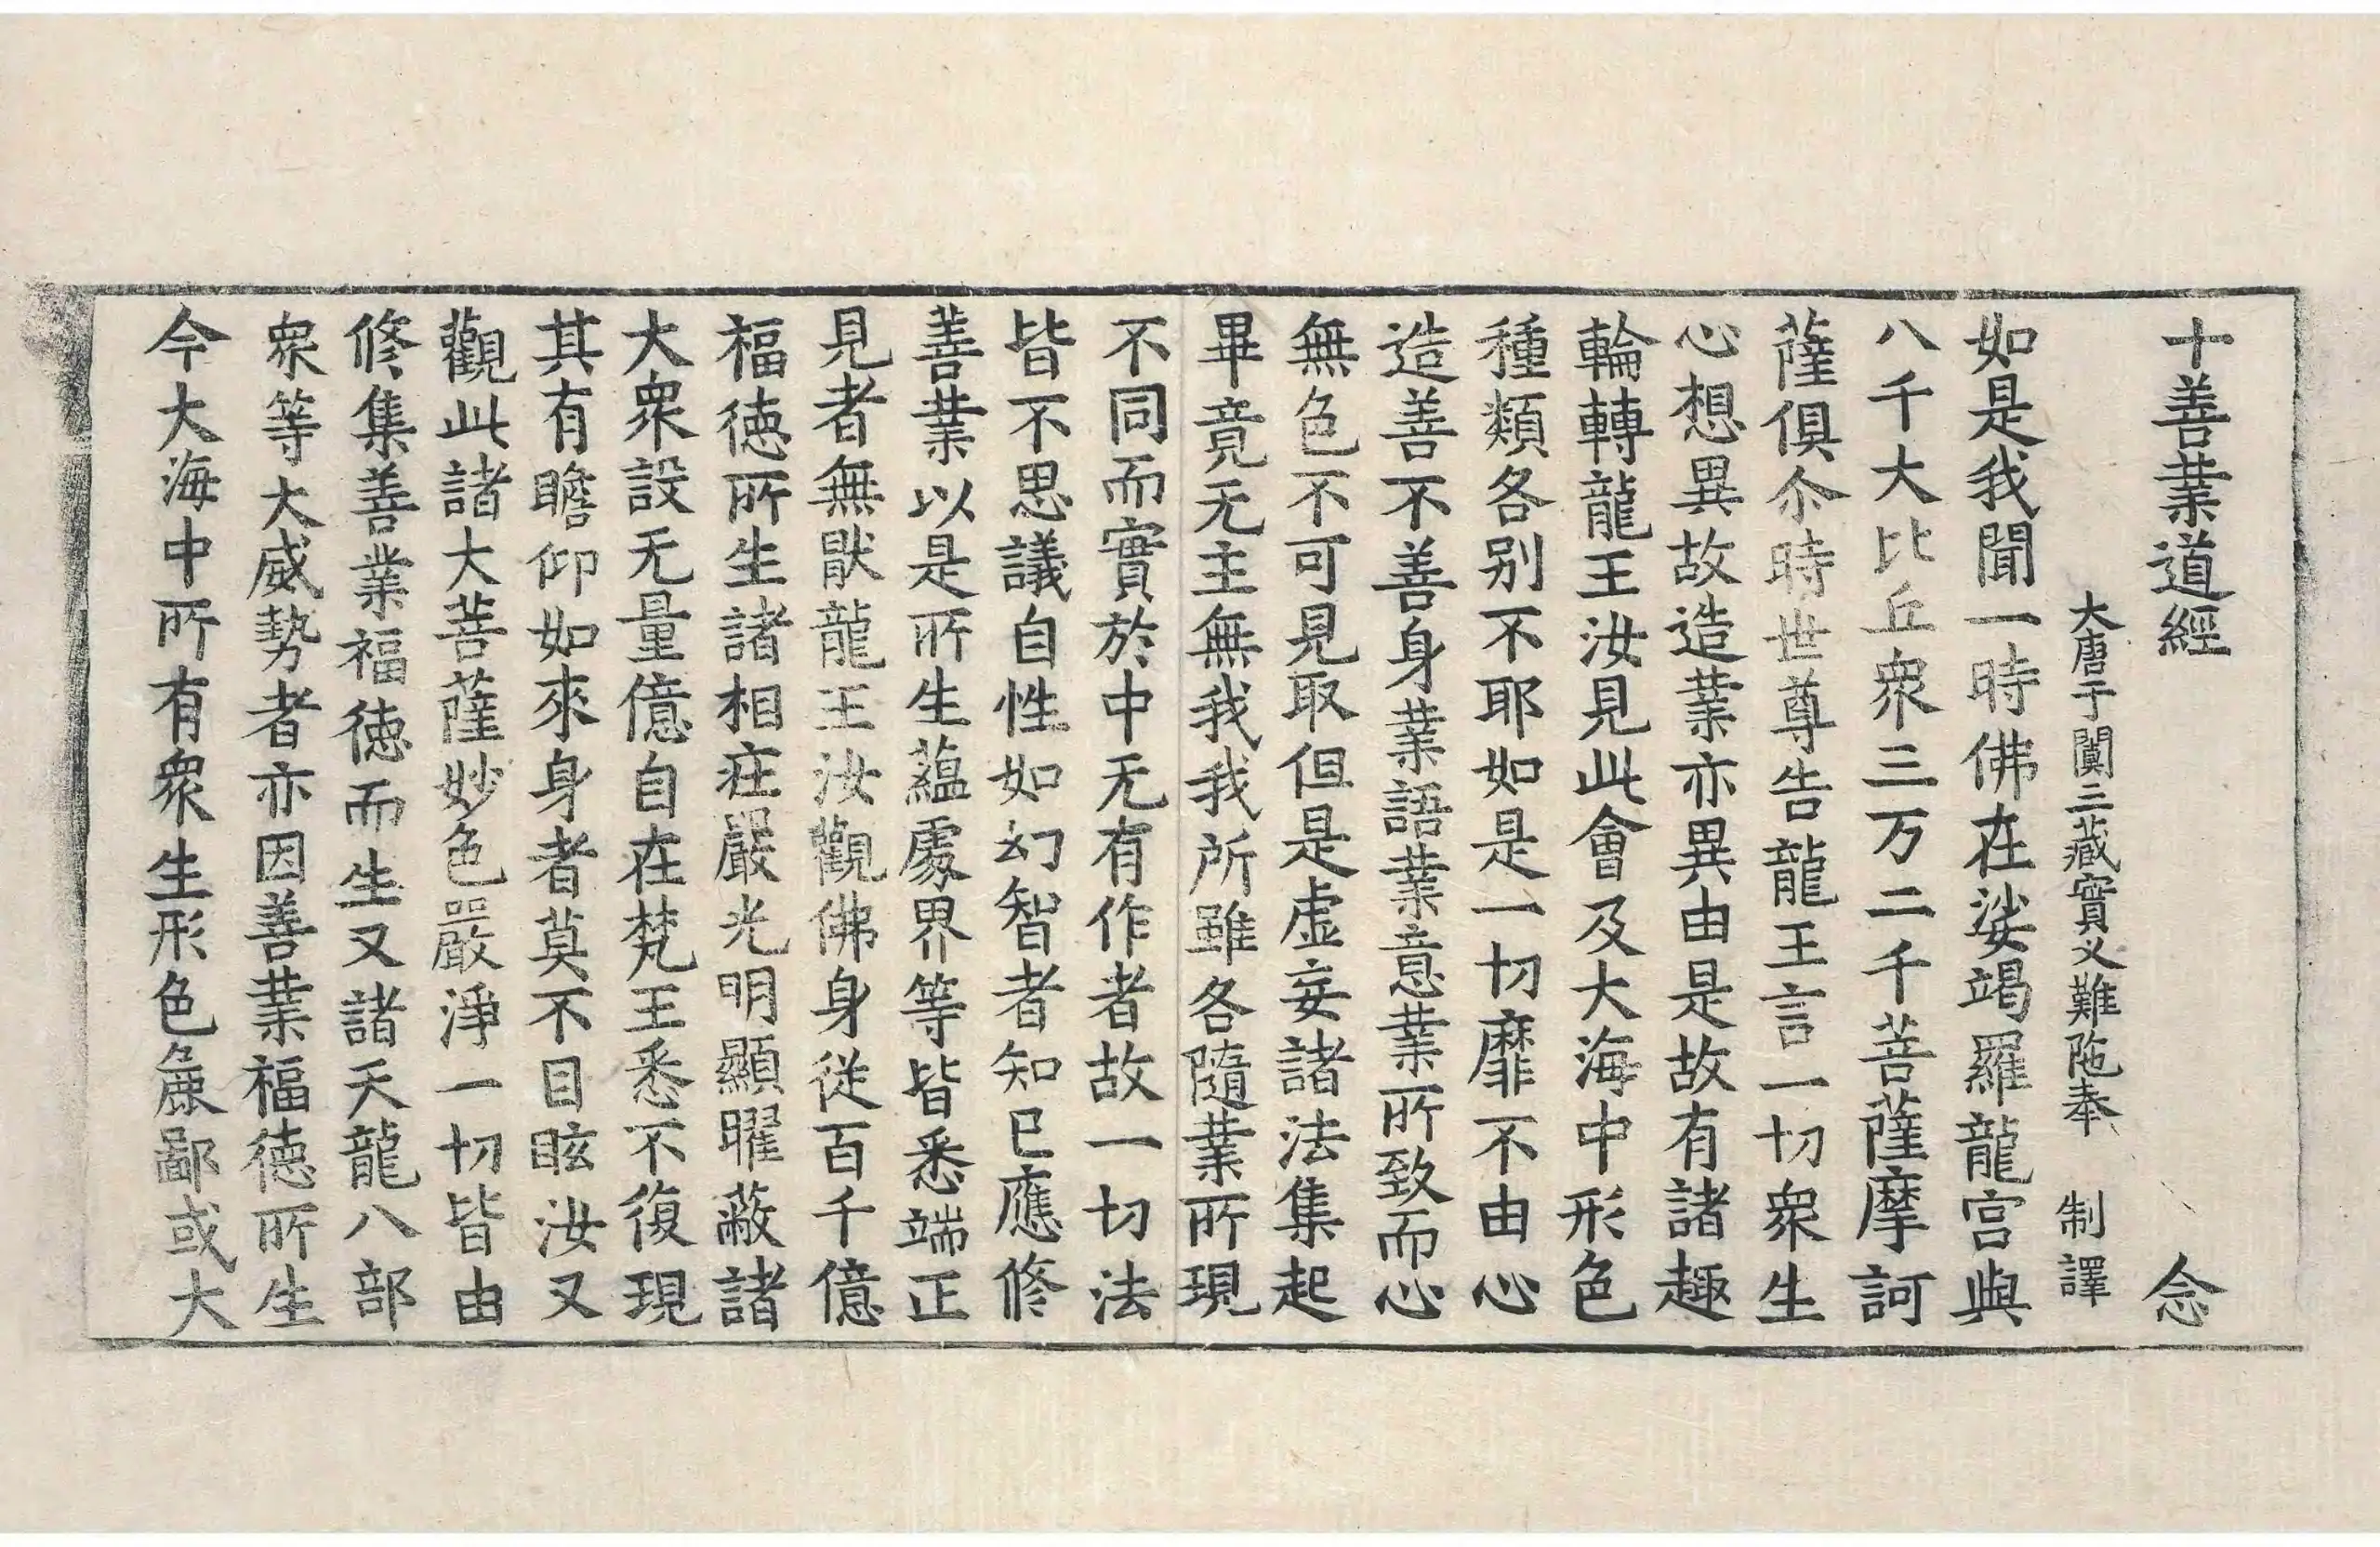 十善業道經 念
大唐于闐三藏實叉難陁奉 制譯
如是我聞一時佛在娑竭羅龍宮與
八千大比丘衆三万二千菩薩摩訶
薩俱尒時世尊告龍王言一切衆生
心想異故造業亦異由是故有諸趣
輪轉龍王汝見此會及大海中形色
種類各別不耶如是一切靡不由心
造善不善身業語業意業所致而心
無色不可見取但是虛妄諸法集起
畢竟无主無我我所雖各隨業所現
不同而實於中无有作者故一切法
皆不思議自性如幻智者知已應修
善業以是所生蘊處界等皆悉端正
見者無猒龍王汝觀佛身從百千億
福德所生諸相莊嚴光明顯曜蔽諸
大衆設无量億自在梵王悉不復現
其有瞻仰如來身者莫不目眩汝又
觀此諸大菩薩妙色嚴淨一切皆由
修集善業福德而生又諸天龍八部
衆等大威勢者亦因善業福德所生
今大海中所有衆生形色麁鄙或大